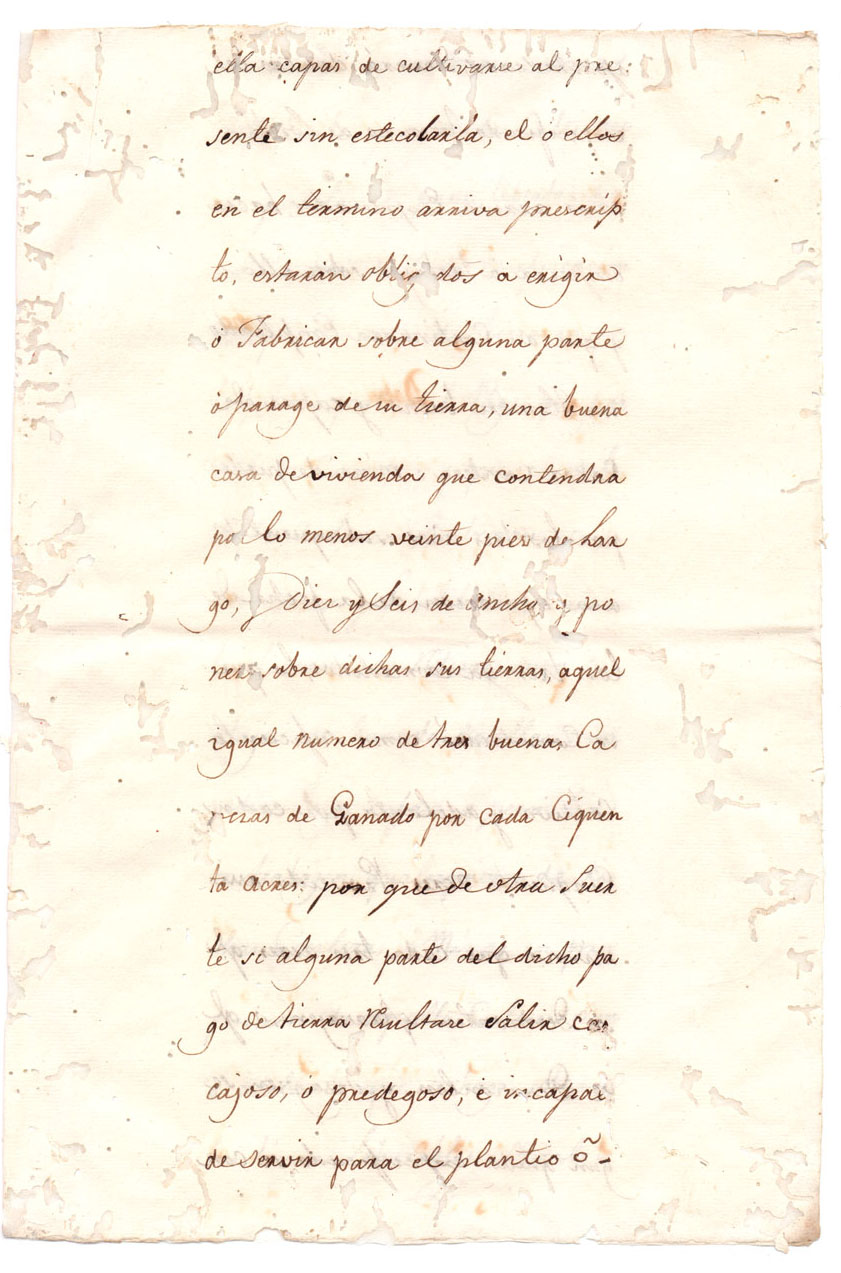 ella capas de cultivarse al pre:
sente sin estecolarla, el o ellos
en el termino arriva prescrip
to, estarán oblig dos a erigir
o Fabricar sobre alguna parte
o parage de su tierra, una buena
casa de vivienda que contendra
po lo menos veinte pies de Lar
go, y Diez y Seis de Ancho y po
ner sobre dichas sus tierras, aquel
igual numero de tres buenas Ca
vezas de Ganado por cada Ciquen
ta acres: por que de otra Suer
te si alguna parte del dicho pa
go de tierra Resultare Salir cas
cajoso, o predegoso, e incapaz
de servir para el plantio õ-